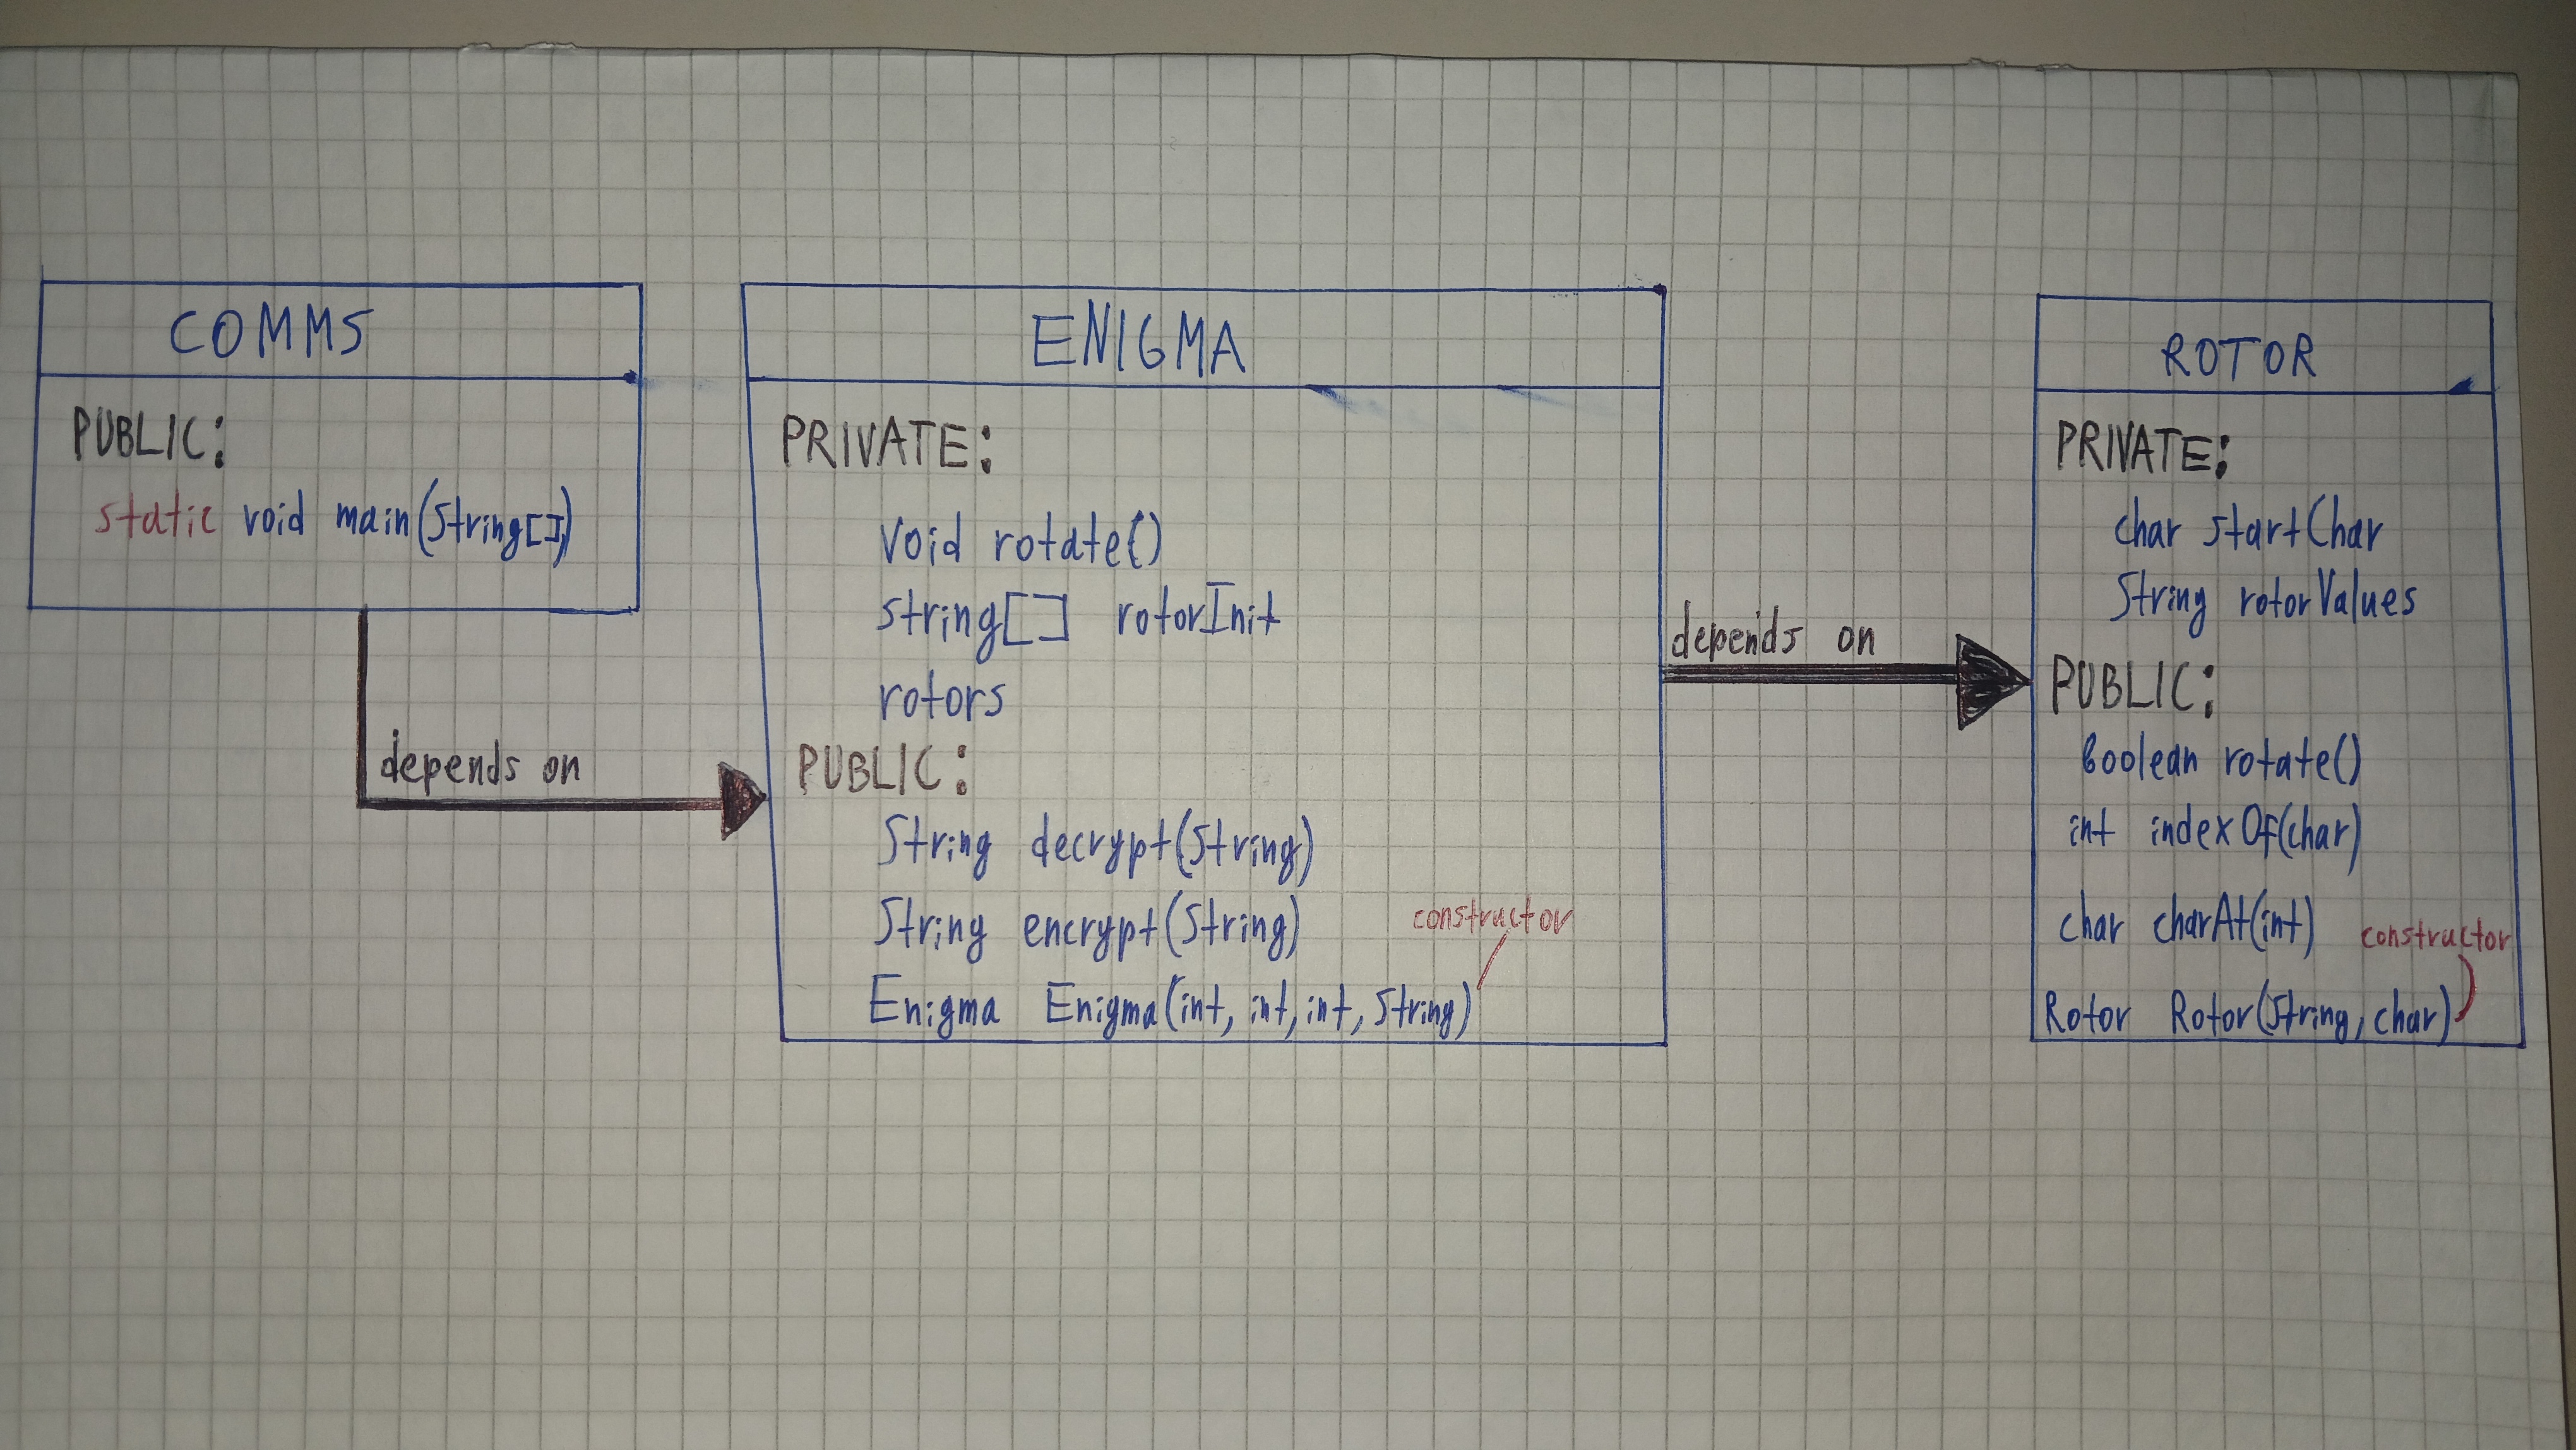 COMMS
PUBLIC:
static void main(String[])
depends on
ENIGMA
PRIVATE:
void rotate()
string[] rotorInit
rotors
PUBLIC:
String decrypt(String)
String encrypt(String)
constructor
Enigma Enigma(int, int, int, String)
depends on
ROTOR
PRIVATE:
char startChar
String rotorValues
PUBLIC:
Boolean rotate()
int indexOf(char)
char charAt(int)
constructor
Rotor Rotor(String, char)